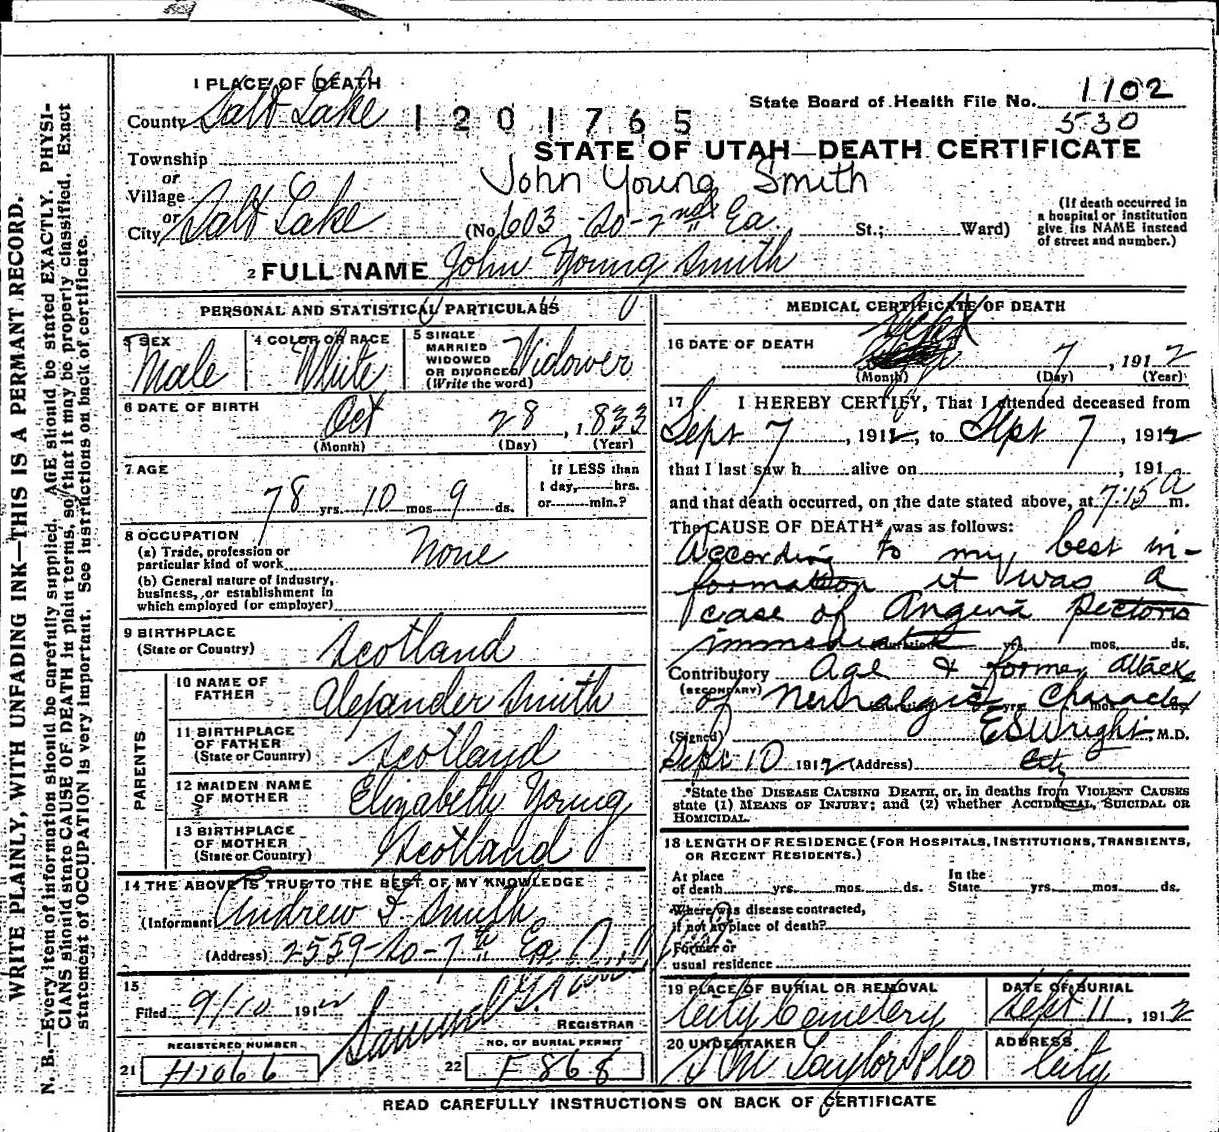 WRITE PLAINLY, WITH UNFADING INK—THIS IS A PERMANENT RECORD.
N. B.—Every item of information should be carefully supplied. AGE should be stated EXACTLY. PHYSI-
CIANS should state CAUSE OF DEATH in plain terms, so that it may be properly classified. Exact
statement of OCCUPATION is very important. See instructions on back of certificate.
1 PLACE OF DEATH
County Salt Lake
1201765
State Board of Health File No. 1102
530
STATE OF UTAH—DEATH CERTIFICATE
Township
or
Village
John Young Smith
or
City Salt Lake
(No. 603 - So - 2nd Ea St.; Ward)
(If death occurred in
a hospital or institution
give its NAME instead
of street and number.)
2 FULL NAME John Young Smith
PERSONAL AND STATISTICAL PARTICULARS
3 SEX
Male
4 COLOR OR RACE
White
5 SINGLE
MARRIED
WIDOWED
OR DIVORCED
(Write the word)
Widower
6 DATE OF BIRTH
Oct 28, 1833
(Month) (Day) (Year)
7 AGE
78 yrs. 10 mos. 9 ds.
If LESS than
1 day, hrs.
or min.?
8 OCCUPATION
(a) Trade, profession or
particular kind of work None
(b) General nature of industry,
business, or establishment in
which employed (or employer)
9 BIRTHPLACE
(State or Country)
Scotland
PARENTS
10 NAME OF
FATHER
Alexander Smith
11 BIRTHPLACE
OF FATHER
(State or Country)
Scotland
12 MAIDEN NAME
OF MOTHER
Elizabeth Young
13 BIRTHPLACE
OF MOTHER
(State or Country)
Scotland
14 THE ABOVE IS TRUE TO THE BEST OF MY KNOWLEDGE
(Informant Andrew I. Smith
(Address) 2559 - So - 7th Ea
15
Filed 9/10 1912
Samuel G.
REGISTRAR
REGISTERED NUMBER
21 H1066
NO. OF BURIAL PERMIT
22 F868
MEDICAL CERTIFICATE OF DEATH
16 DATE OF DEATH
Sept 7, 1912
(Month) (Day) (Year)
17 I HEREBY CERTIFY, That I attended deceased from
Sept 7, 1912, to Sept 7, 1912
that I last saw h alive on , 191
and that death occurred, on the date stated above, at 7:15 A m.
The CAUSE OF DEATH* was as follows:
According to my best in-
formation it was a
case of Angina Pectoris
immediate yrs. mos. ds.
Contributory Age & former attacks
(SECONDARY) of Neuralgic Character
(Signed) E S Wright, M.D.
Sept 10 1912 (Address) City
*State the DISEASE CAUSING DEATH, or, in deaths from VIOLENT CAUSES
state (1) MEANS OF INJURY; and (2) whether ACCIDENTAL, SUICIDAL OR
HOMICIDAL.
18 LENGTH OF RESIDENCE (FOR HOSPITALS, INSTITUTIONS, TRANSIENTS,
OR RECENT RESIDENTS.)
At place
of death yrs. mos. ds.
In the
State yrs. mos. ds.
Where was disease contracted,
if not at place of death?
Former or
usual residence
19 PLACE OF BURIAL OR REMOVAL
City Cemetery
DATE OF BURIAL
Sept 11, 1912
20 UNDERTAKER
S M Taylor & Co
ADDRESS
City
READ CAREFULLY INSTRUCTIONS ON BACK OF CERTIFICATE